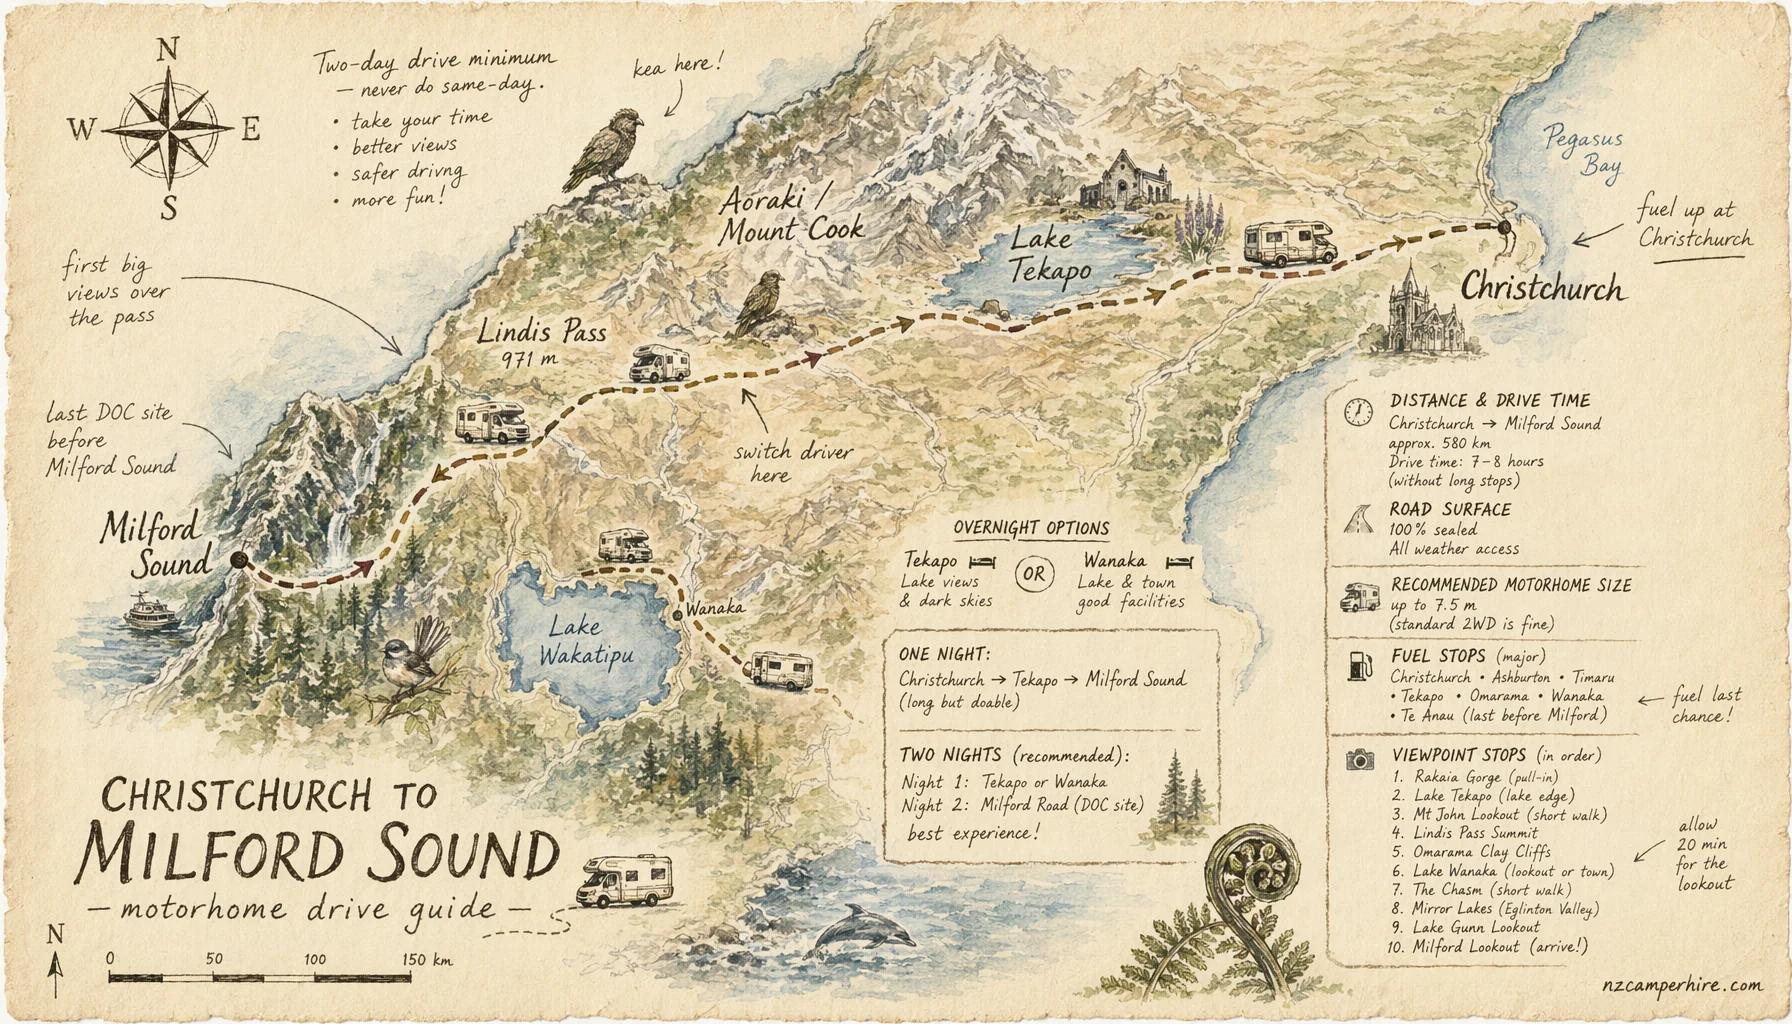 N
W
E
S
Two-day drive minimum
— never do same-day.
• take your time
• better views
• safer drivng
• more fun!
kea here!
first big
views over
the pass
last DOC site
before
Milford Sound
Aoraki /
Mount Cook
Lake
Tekapo
Pegasus
Bay
fuel up at
Christchurch
Christchurch
Lindis Pass
971 m
switch driver
here
Milford
Sound
Lake
Wakatipu
Wanaka
OVERNIGHT OPTIONS
Tekapo
Lake views
& dark skies
OR
Wanaka
Lake & town
good facilities
ONE NIGHT:
Christchurch → Tekapo → Milford Sound
(long but doable)
TWO NIGHTS (recommended):
Night 1: Tekapo or Wanaka
Night 2: Milford Road (DOC site)
best experience!
DISTANCE & DRIVE TIME
Christchurch → Milford Sound
approx. 580 km
Drive time: 7–8 hours
(without long stops)
ROAD SURFACE
100% sealed
All weather access
RECOMMENDED MOTORHOME SIZE
up to 7.5 m
(standard 2WD is fine)
FUEL STOPS (major)
Christchurch • Ashburton • Timaru
• Tekapo • Omarama • Wanaka
• Te Anau (last before Milford)
fuel last
chance!
VIEWPOINT STOPS (in order)
1. Rakaia Gorge (pull-in)
2. Lake Tekapo (lake edge)
3. Mt John Lookout (short walk)
4. Lindis Pass Summit
5. Omarama Clay Cliffs
6. Lake Wanaka (lookout or town)
7. The Chasm (short walk)
8. Mirror Lakes (Eglinton Valley)
9. Lake Gunn Lookout
10. Milford Lookout (arrive!)
allow
20 min
for the
lookout
CHRISTCHURCH TO
MILFORD SOUND
— motorhome drive guide —
N
0 50 100 150 km
nzcamperhire.com